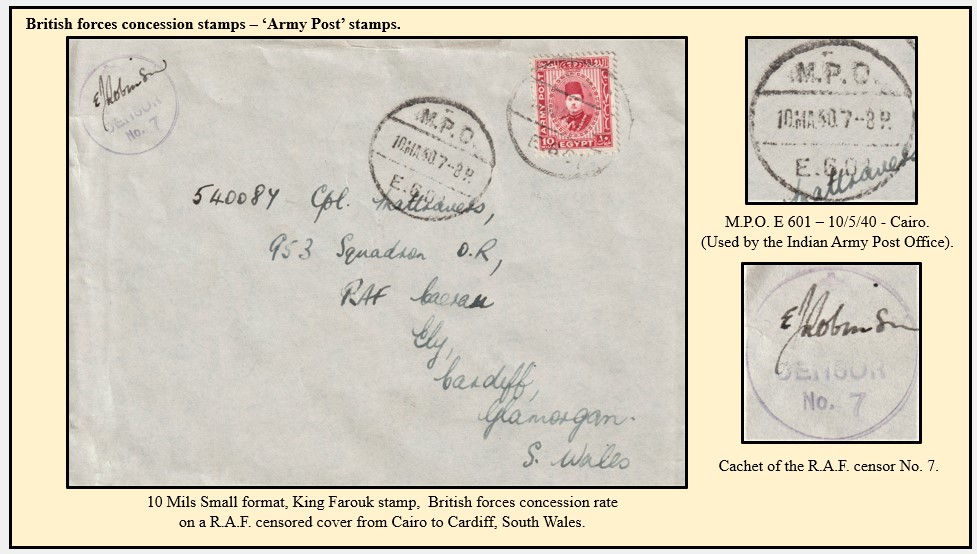 British forces concession stamps – ‘Army Post’ stamps.
E J Robinson
CENSOR
No. 7
M.P.O.
10 MA 40. 7-8 P.
E.601
ARMY POST
10
EGYPT
540084 Cpl. Mattravers,
953 Squadron O.R,
RAF Caerau
Ely,
Cardiff,
Glamorgan.
S. Wales
10 Mils Small format, King Farouk stamp, British forces concession rate
on a R.A.F. censored cover from Cairo to Cardiff, South Wales.
M.P.O.
10 MA 40. 7-8 P.
E.601
Mattravers
M.P.O. E 601 – 10/5/40 - Cairo.
(Used by the Indian Army Post Office).
E J Robinson
CENSOR
No. 7
Cachet of the R.A.F. censor No. 7.